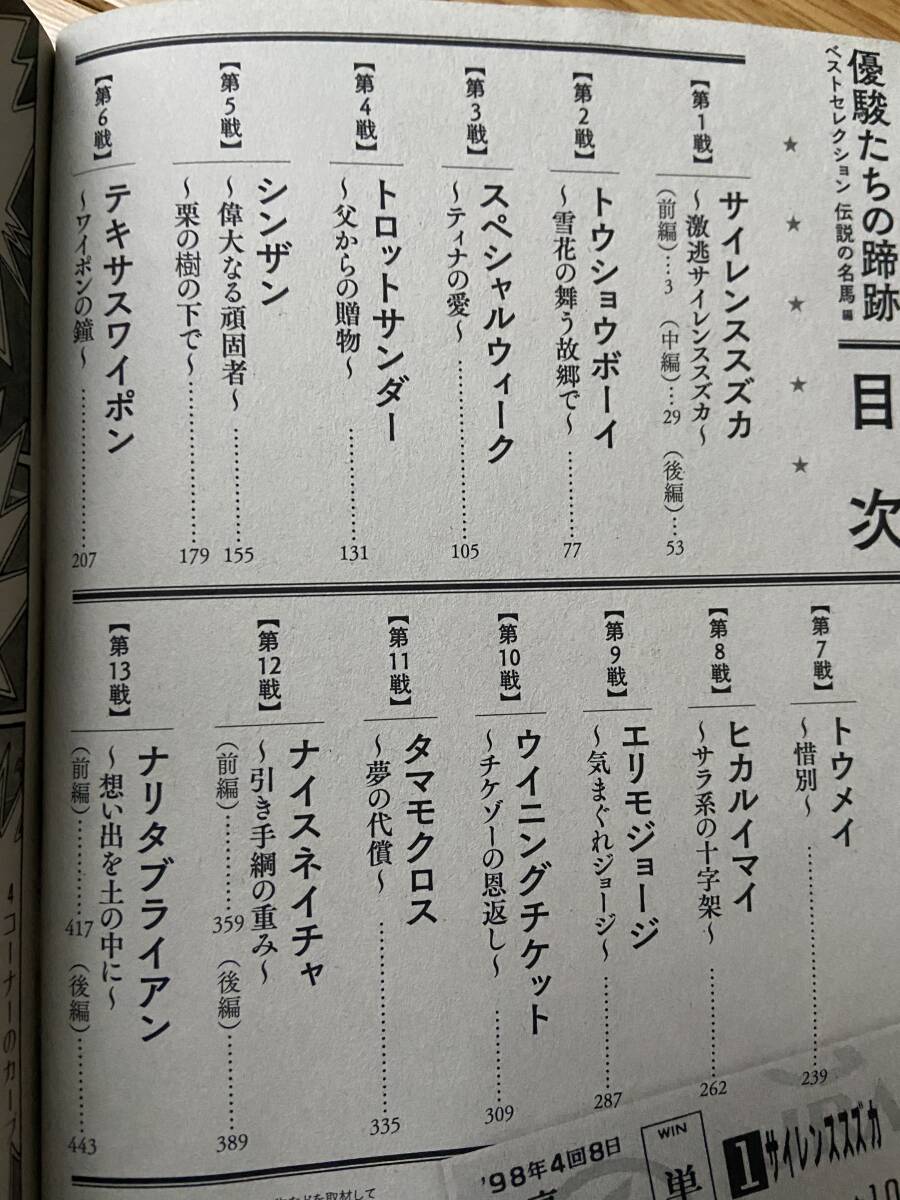 優駿たちの蹄跡
ベストセレクション 伝説の名馬 編
目次
【第1戦】
サイレンススズカ
〜激逃サイレンススズカ〜
(前編)…3 (中編)…29 (後編)…53
【第2戦】
トウショウボーイ
〜雪花の舞う故郷で〜………77
【第3戦】
スペシャルウィーク
〜ティナの愛〜………105
【第4戦】
トロットサンダー
〜父からの贈物〜………131
【第5戦】
シンザン
〜偉大なる頑固者〜………155
〜栗の樹の下で〜………179
【第6戦】
テキサスワイポン
〜ワイポンの鐘〜………207
【第7戦】
トウメイ
〜惜別〜………239
【第8戦】
ヒカルイマイ
〜サラ系の十字架〜………262
【第9戦】
エリモジョージ
〜気まぐれジョージ〜………287
【第10戦】
ウイニングチケット
〜チケゾーの恩返し〜………309
【第11戦】
タマモクロス
〜夢の代償〜………335
【第12戦】
ナイスネイチャ
〜引き手綱の重み〜
(前編)………359 (後編)………389
【第13戦】
ナリタブライアン
〜想い出を土の中に〜
(前編)………417 (後編)………443
'98年4回8日
WIN
単
1 サイレンススズカ
4コーナーのカーブ
を取材して